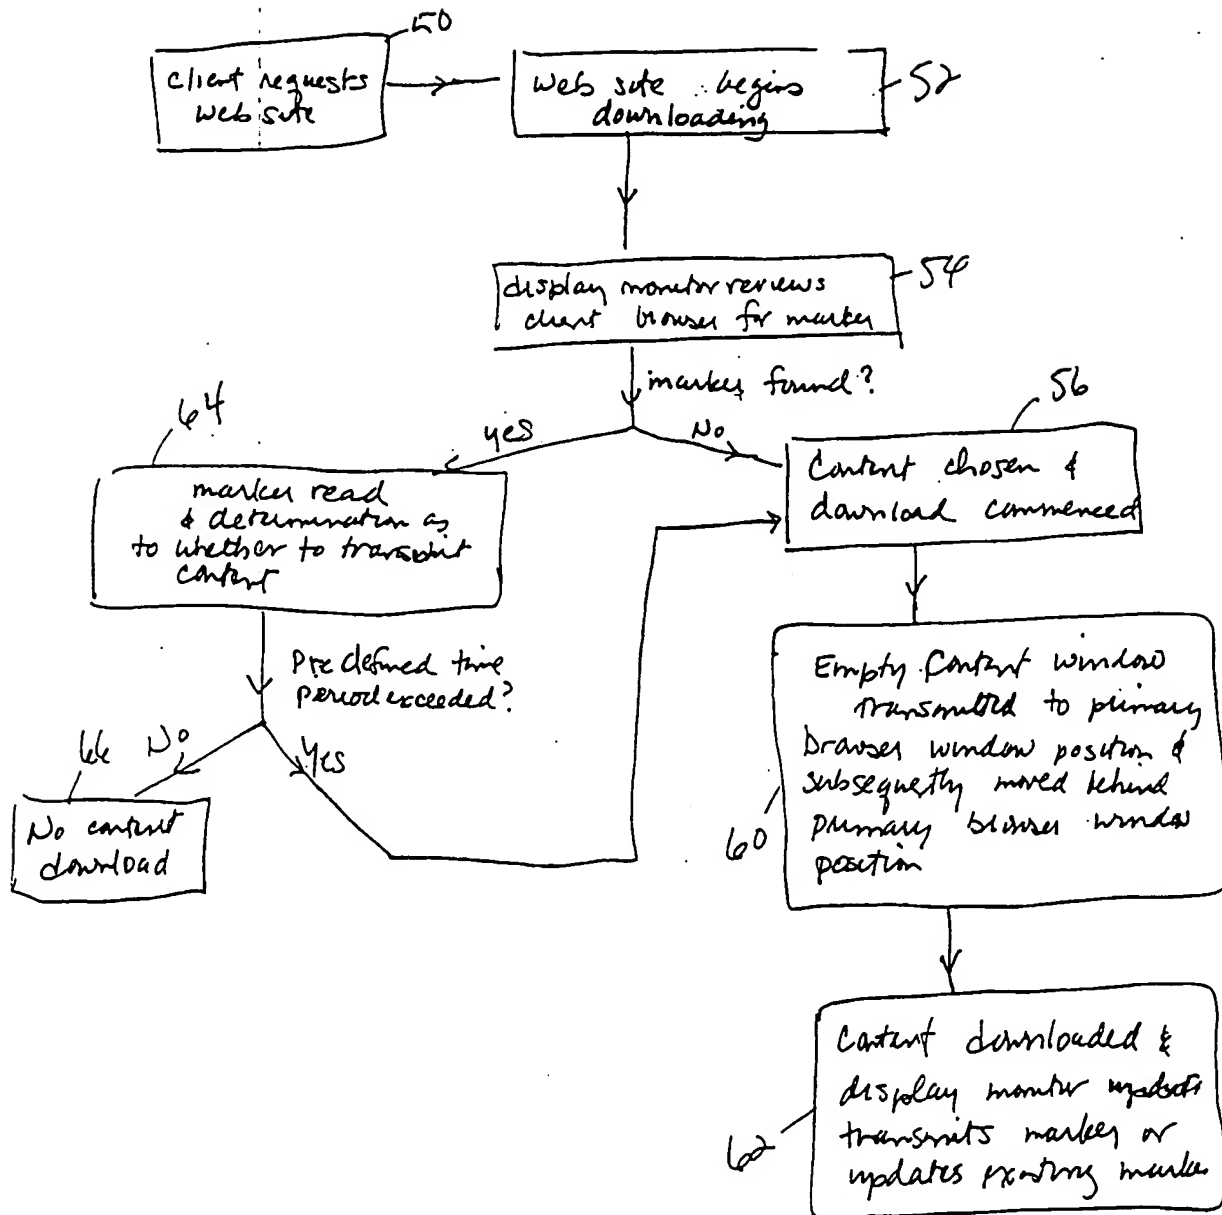 50
client requests
web site
web site begins
downloading
52
display monitor reviews
client browser for marker
54
marker found?
yes
No
64
marker read
& determination as
to whether to transmit
content
56
Content chosen &
download commenced
Pre defined time
period exceeded?
No
Yes
66
No content
download
Empty Content window
transmitted to primary
browser window position &
subsequently moved behind
primary browser window
position
60
Content downloaded &
display monitor
transmits marker or
updates existing marker
62